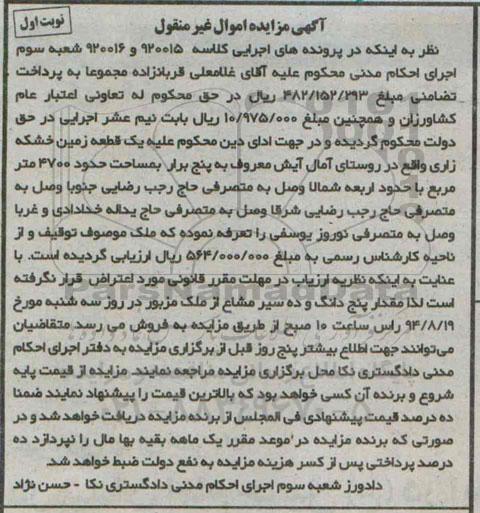 نوبت اول
آگهی مزایده اموال غیر منقول
نظر به اینکه در پرونده های اجرایی کلاسه ۹۲۰۰۱۵ و ۹۲۰۰۱۶ شعبه سوم
اجرای احکام مدنی محکوم علیه آقای غلامعلی قربانزاده مجموعا به پرداخت
تضامنی مبلغ ۴۸۲/۱۵۲/۲۹۲ ریال در حق محکوم له تعاونی اعتبار عام
کشاورزان و همچنین مبلغ ۱۰/۹۷۵/۰۰۰ ریال بابت نیم عشر اجرایی در حق
دولت محکوم گردیده و در جهت ادای دین محکوم علیه یک قطعه زمین خشکه
زاری واقع در روستای آمال آیش معروف به پنج برار بمساحت حدود ۴۷۰۰ متر
مربع با حدود اربعه شمالا وصل به متصرفی حاج رجب رضایی جنوبا وصل به
متصرفی حاج رجب رضایی شرقا وصل به متصرفی حاج یداله خدادادی و غربا
وصل به متصرفی نوروز یوسفی را تعرفه نموده که ملک موصوف توقیف و از
ناحیه کارشناس رسمی به مبلغ ۵۶۴/۰۰۰/۰۰۰ ریال ارزیابی گردیده است. با
عنایت به اینکه نظریه ارزیاب در مهلت مقرر قانونی مورد اعتراض قرار نگرفته
است لذا مقدار پنج دانگ و ده سیر مشاع از ملک مزبور در روز سه شنبه مورخ
۹۴/۸/۱۹ راس ساعت ۱۰ صبح از طریق مزایده به فروش می رسد متقاضیان
می‌توانند جهت اطلاع بیشتر پنج روز قبل از برگزاری مزایده به دفتر اجرای احکام
مدنی دادگستری نکا محل برگزاری مزایده مراجعه نمایند. مزایده از قیمت پایه
شروع و برنده آن کسی خواهد بود که بالاترین قیمت را پیشنهاد نمایند ضمنا
ده درصد قیمت پیشنهادی فی المجلس از برنده مزایده دریافت خواهد شد و در
صورتی که برنده مزایده در موعد مقرر یک ماهه بقیه بها مال را نپردازد ده
درصد پرداختی پس از کسر هزینه مزایده به نفع دولت ضبط خواهد شد.
دادورز شعبه سوم اجرای احکام مدنی دادگستری نکا - حسن نژاد